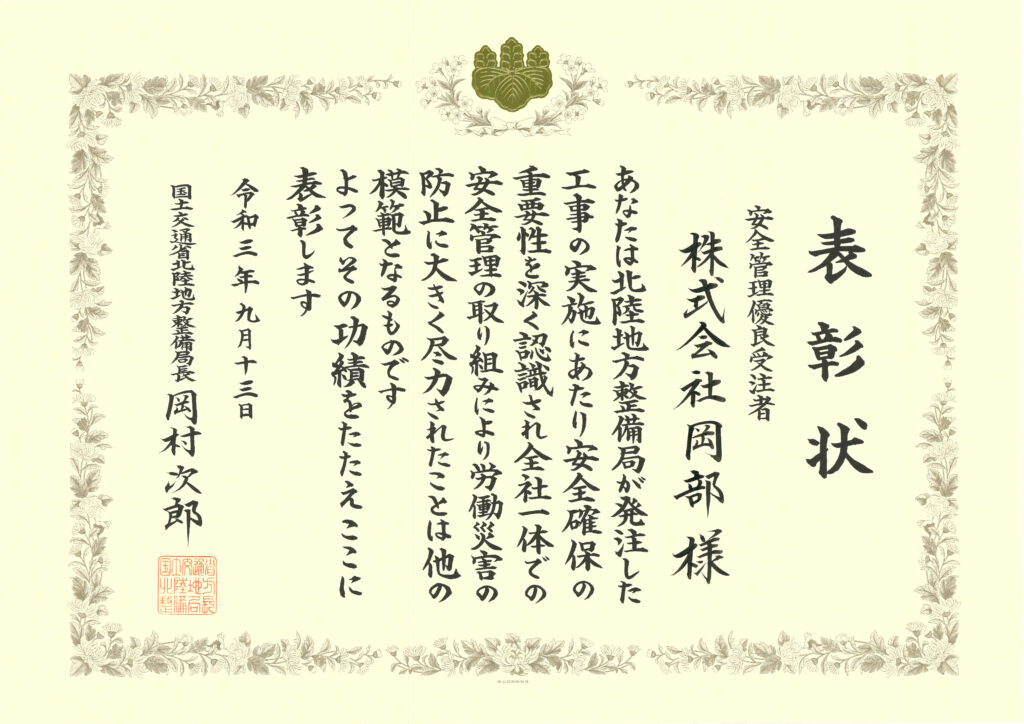 表彰状
安全管理優良受注者
株式会社岡部様
あなたは北陸地方整備局が発注した
工事の実施にあたり安全確保の
重要性を深く認識され全社一体での
安全管理の取り組みにより労働災害の
防止に大きく尽力されたことは他の
模範となるものです
よってその功績をたたえここに
表彰します
令和三年九月十三日
国土交通省北陸地方整備局長 岡村次郎